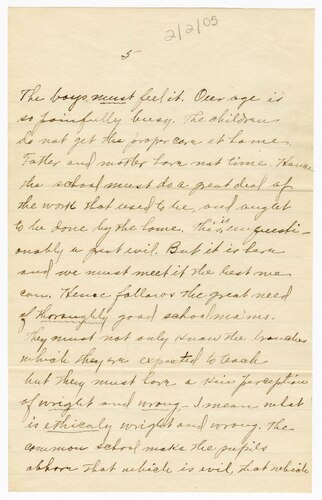 2/2/05
5
The boys must feel it. Our age is
so painfully busy. The children
do not get the proper care at home.
Father and mother have not time. Hence
the school must do a great deal of
the work that used to be, and ought
to be done by the home. This is unquesti-
onably a great evil. But it is here
and we must meet it the best we
can. Hence follows the great need
of thoroughly good school mams.
They must not only know the branches
which they are expected to teach
but they must have a keen perception
of wright and wrong. I mean what
is ethicaly wright and wrong. The
common school make the pupils
abhore that which is evil, that which